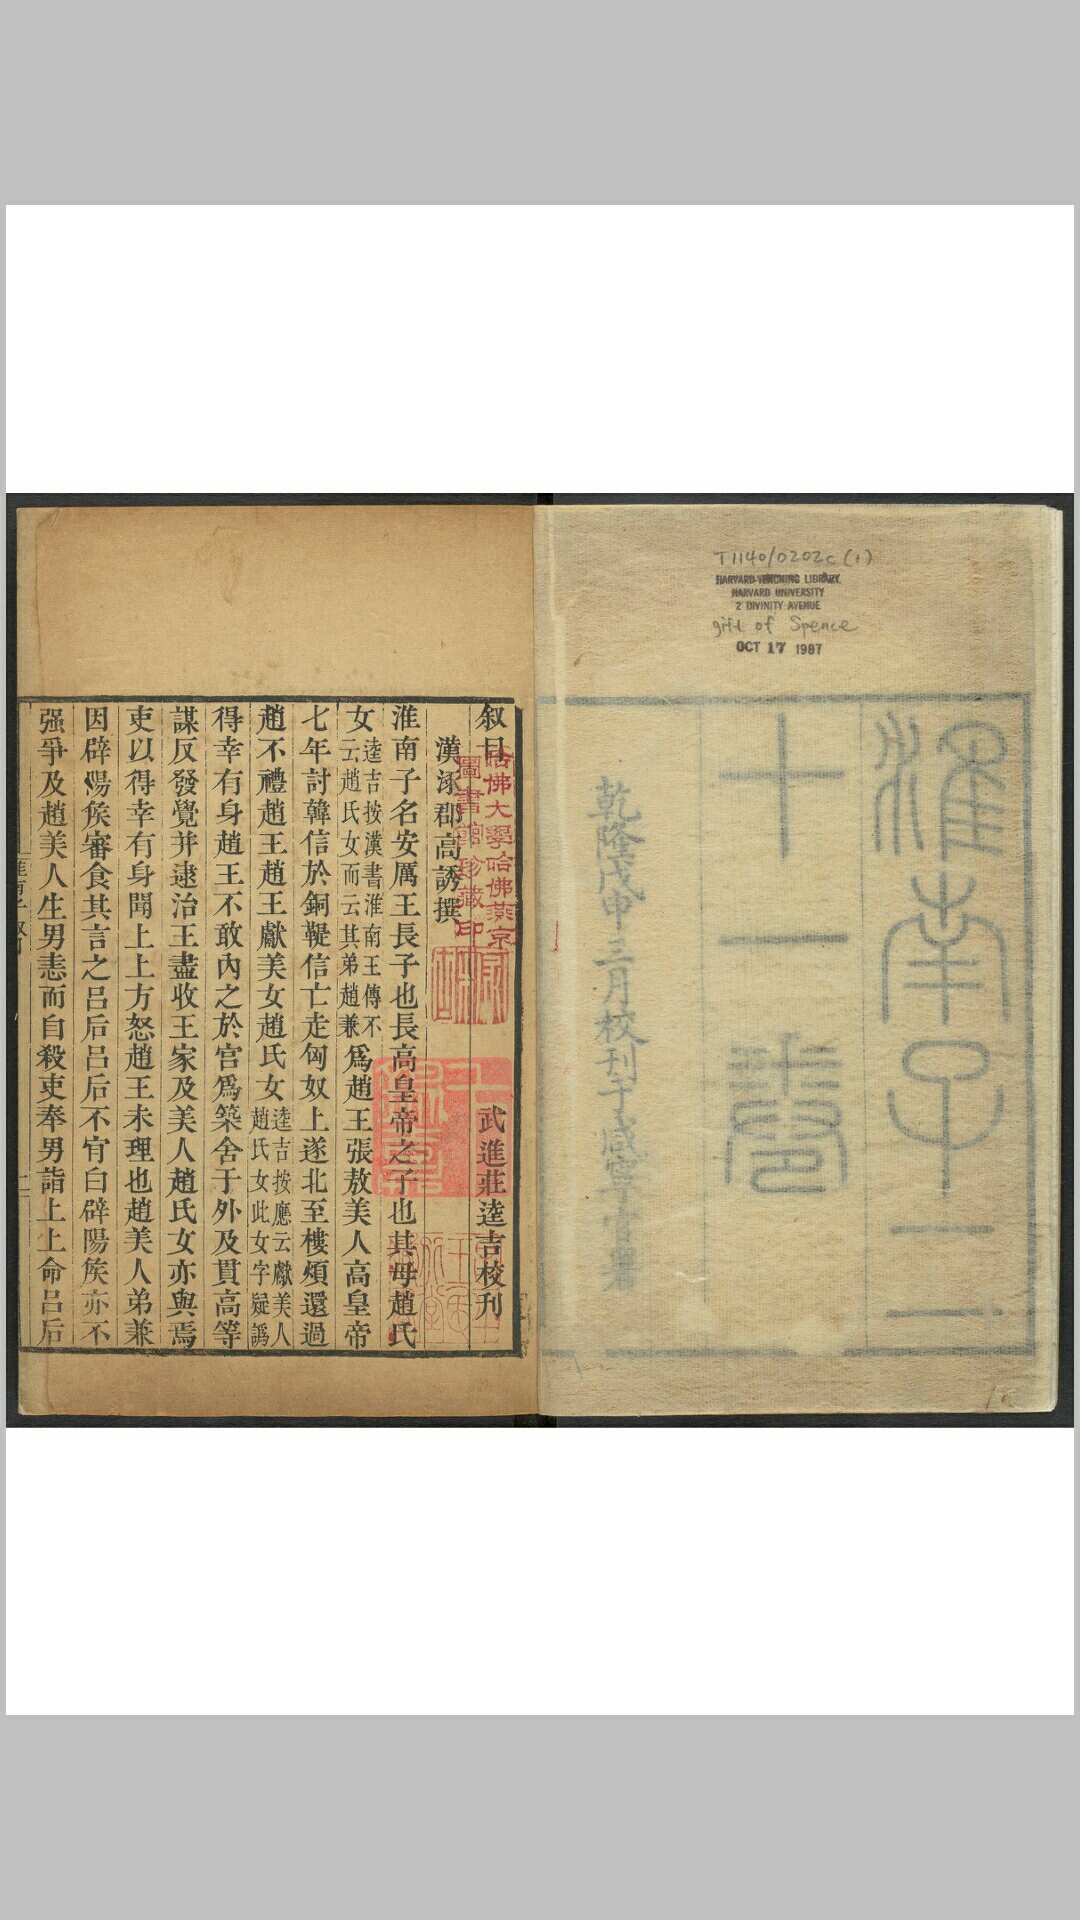 T1140/0202c(1)
HARVARD-YENCHING LIBRARY
HARVARD UNIVERSITY
2 DIVINITY AVENUE
gift of Spence
OCT 17 1987
淮南子二
十一卷
乾隆戊申三月校刊于咸寧官署
叙目 武進莊逵吉校刋
漢涿郡高誘撰
哈佛大學哈佛燕京
圖書館珍藏印
淮南子名安厲王長子也長高皇帝之子也其母趙氏
女逵吉按漢書淮南王傳不云趙氏女而云其弟趙兼爲趙王張敖美人高皇帝
七年討韓信於銅鞮信亡走匈奴上遂北至樓煩還過
趙不禮趙王趙王獻美女趙氏女逵吉按應云獻美人趙氏女此女字疑譌
得幸有身趙王不敢內之於宮爲築舍于外及貫高等
謀反發覺并逮治王盡收王家及美人趙氏女亦與焉
吏以得幸有身聞上上方怒趙王未理也趙美人弟兼
因辟陽矦審食其言之呂后呂后不肎白辟陽矦亦不
强爭及趙美人生男恚而自殺吏奉男詣上上命呂后